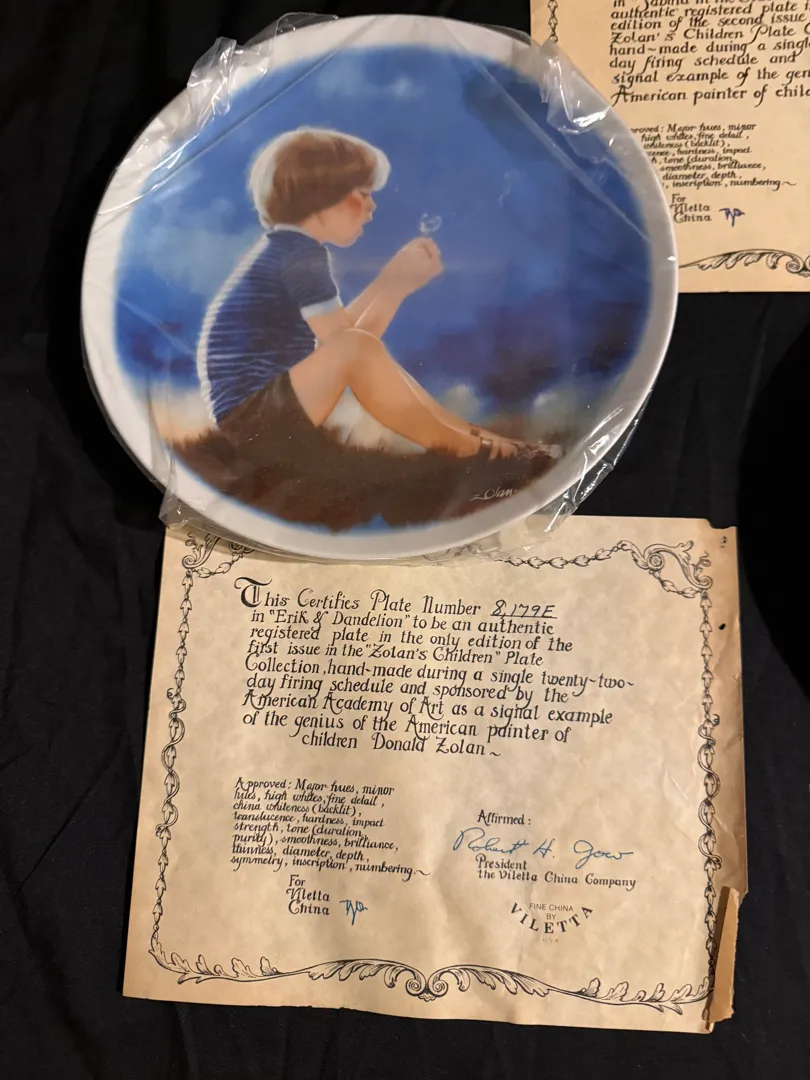 in "Sabina in the
authentic registered plate i
edition of the second issue
Zolan's Children Plate C
hand~made during a singl
day firing schedule and
signal example of the gen
American painter of child
roved: Major hues, minor
high whites, fine detail,
whiteness (backlit),
cence, hardness, impact
h, tone (duration,
smoothness, brilliance,
diameter, depth,
, inscription, numbering~
For
Viletta
China
Zolan
This Certifies Plate Number 8,179E
in "Erik & Dandelion" to be an authentic
registered plate in the only edition of the
first issue in the "Zolan's Children" Plate
Collection, hand~made during a single twenty~two~
day firing schedule and sponsored by the
American Academy of Art as a signal example
of the genius of the American painter of
children Donald Zolan~
Approved: Major hues, minor
hues, high whites, fine detail,
china whiteness (backlit),
translucence, hardness, impact
strength, tone (duration,
purity), smoothness, brilliance,
thinness, diameter, depth,
symmetry, inscription, numbering~
For
Viletta
China
Affirmed:
Robert H. Gow
President
the Viletta China Company
FINE CHINA
BY
VILETTA
USA